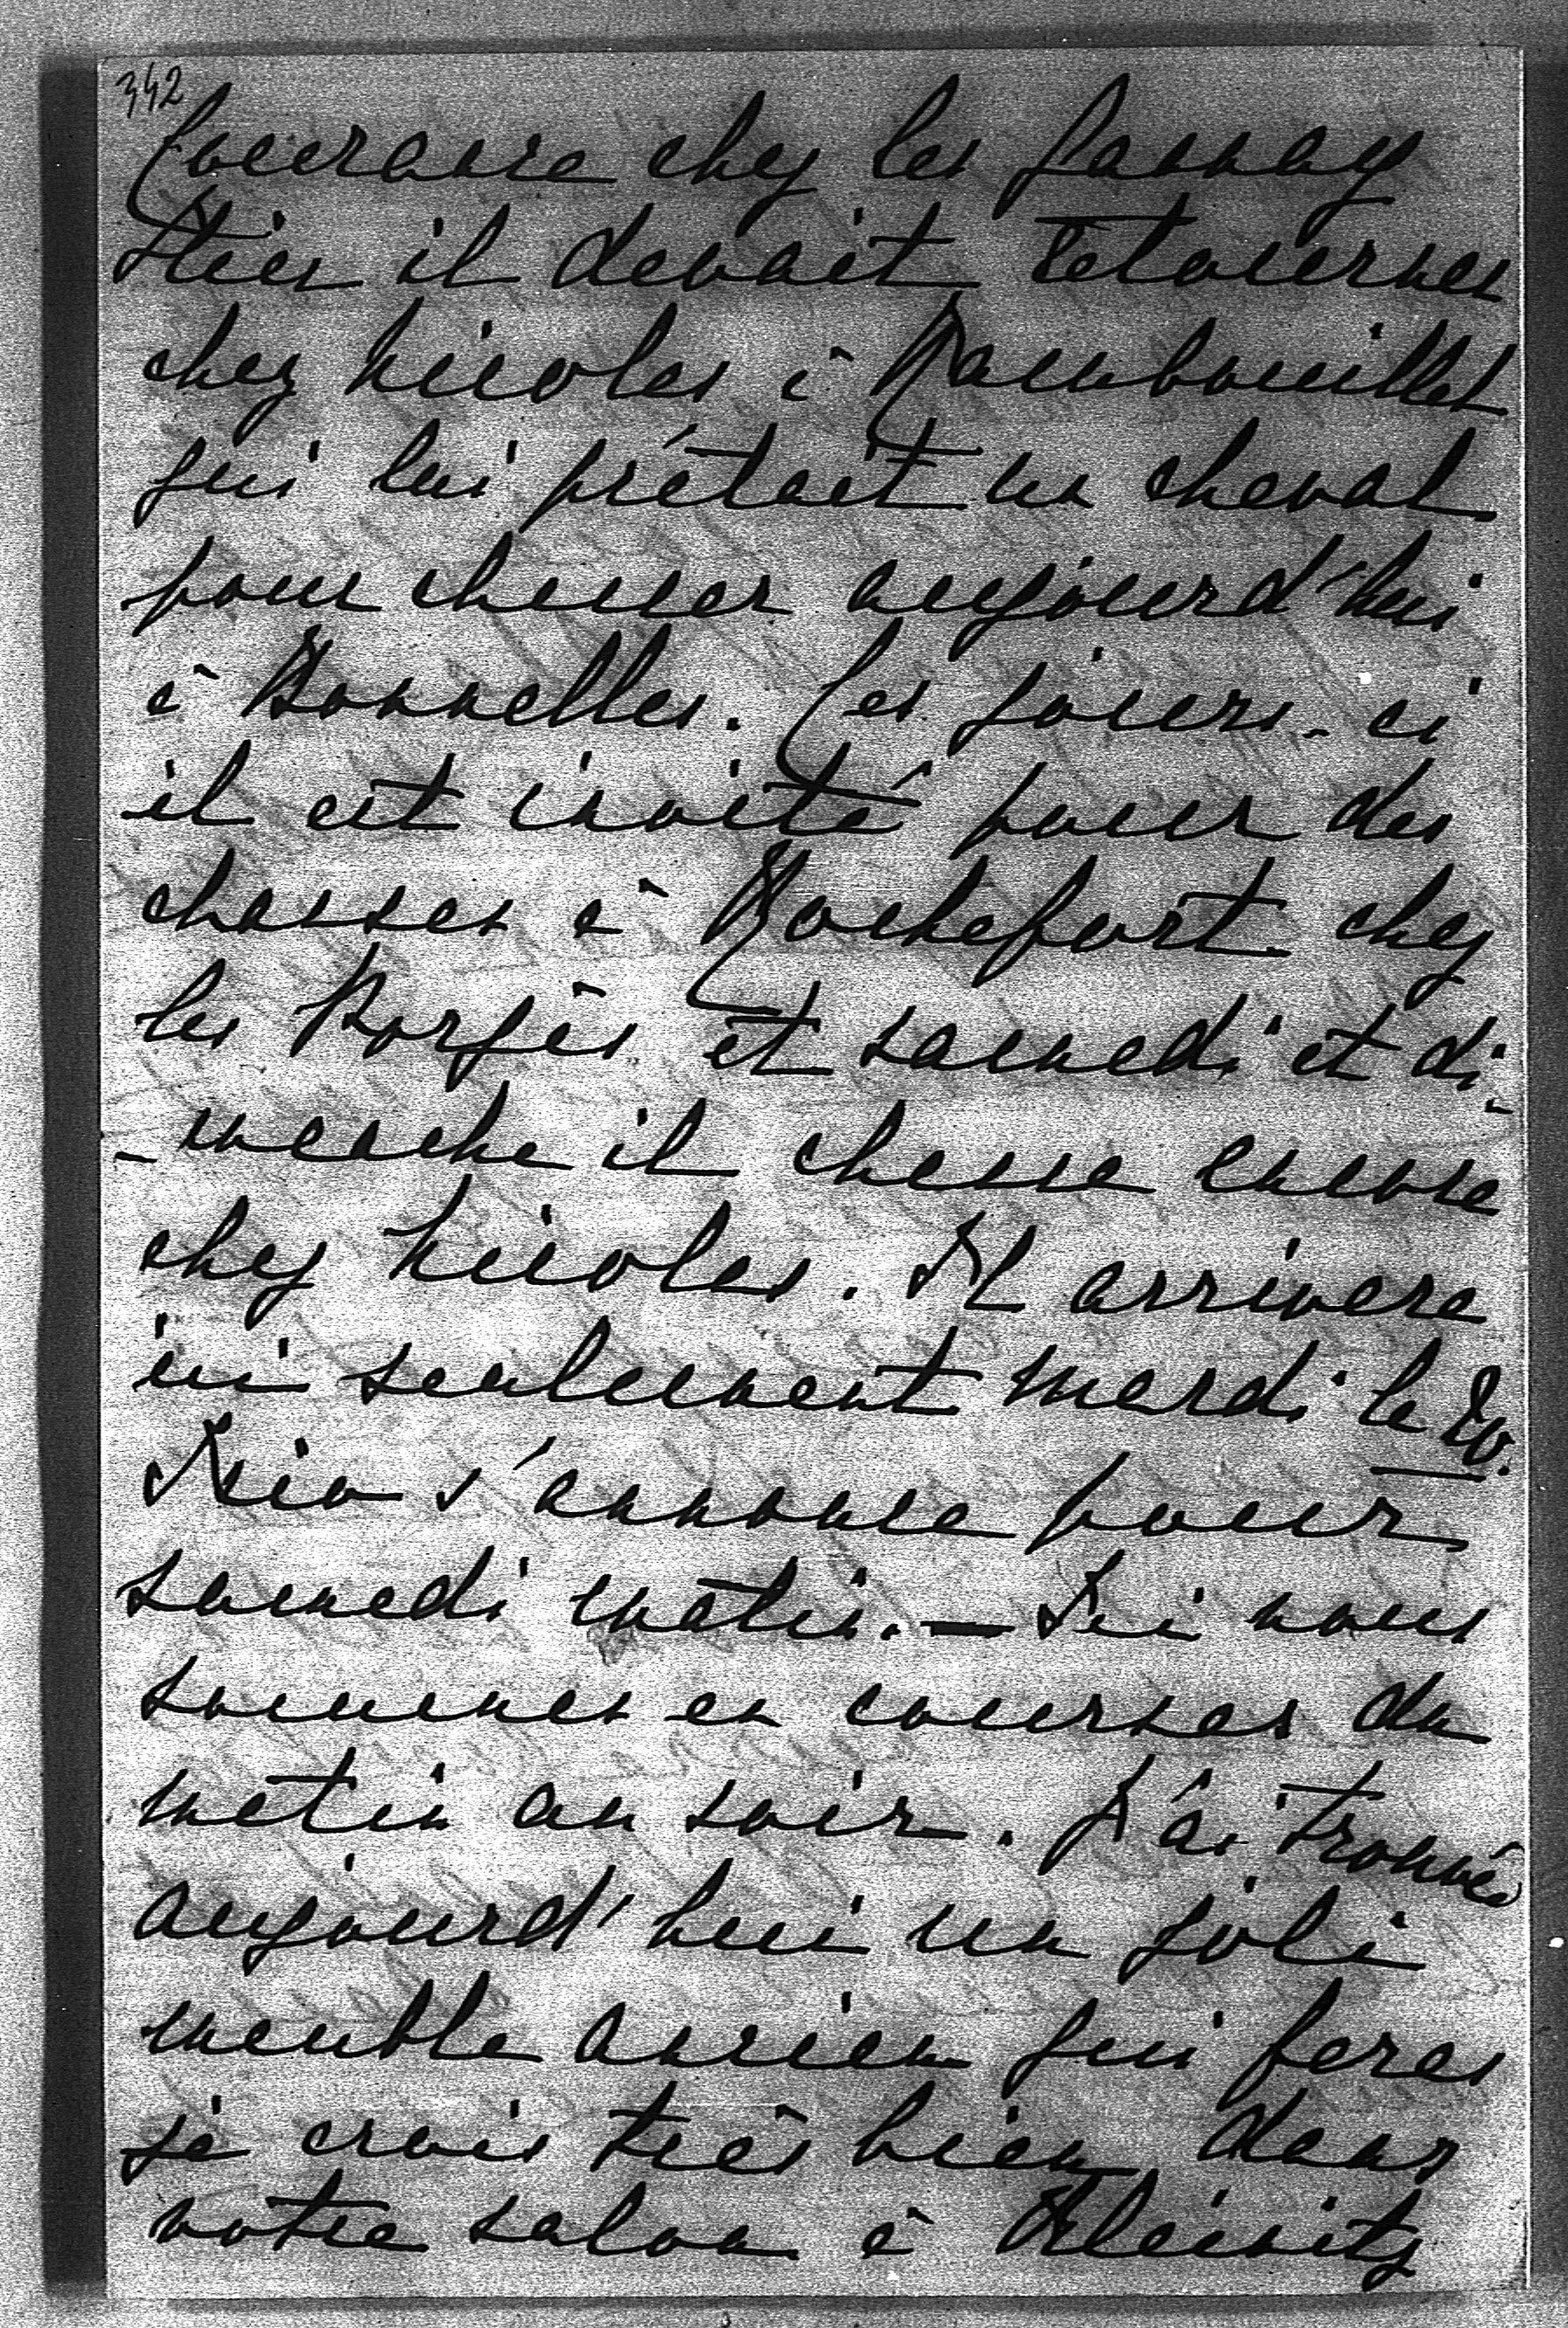 342
Courance chez les Gannay
Hier il devait retourner
chez Nicolas à Rambouillet
qui lui prêtait un cheval
pour chasser aujourd'hui
à Bonnelles. Ces jours-ci
il est invité pour des
chasses à Rochefort chez
les Porgès et samedi et di-
-manche il chasse encore
chez Nicolas. Il arrivera
ici seulement mardi le 20.
s'annonce pour
samedi matin. — Ici nous
sommes en courses du
matin au soir. J'ai trouvé
aujourd'hui un joli
meuble ancien qui fera
je crois très bien dans
notre salon à Kleinitz